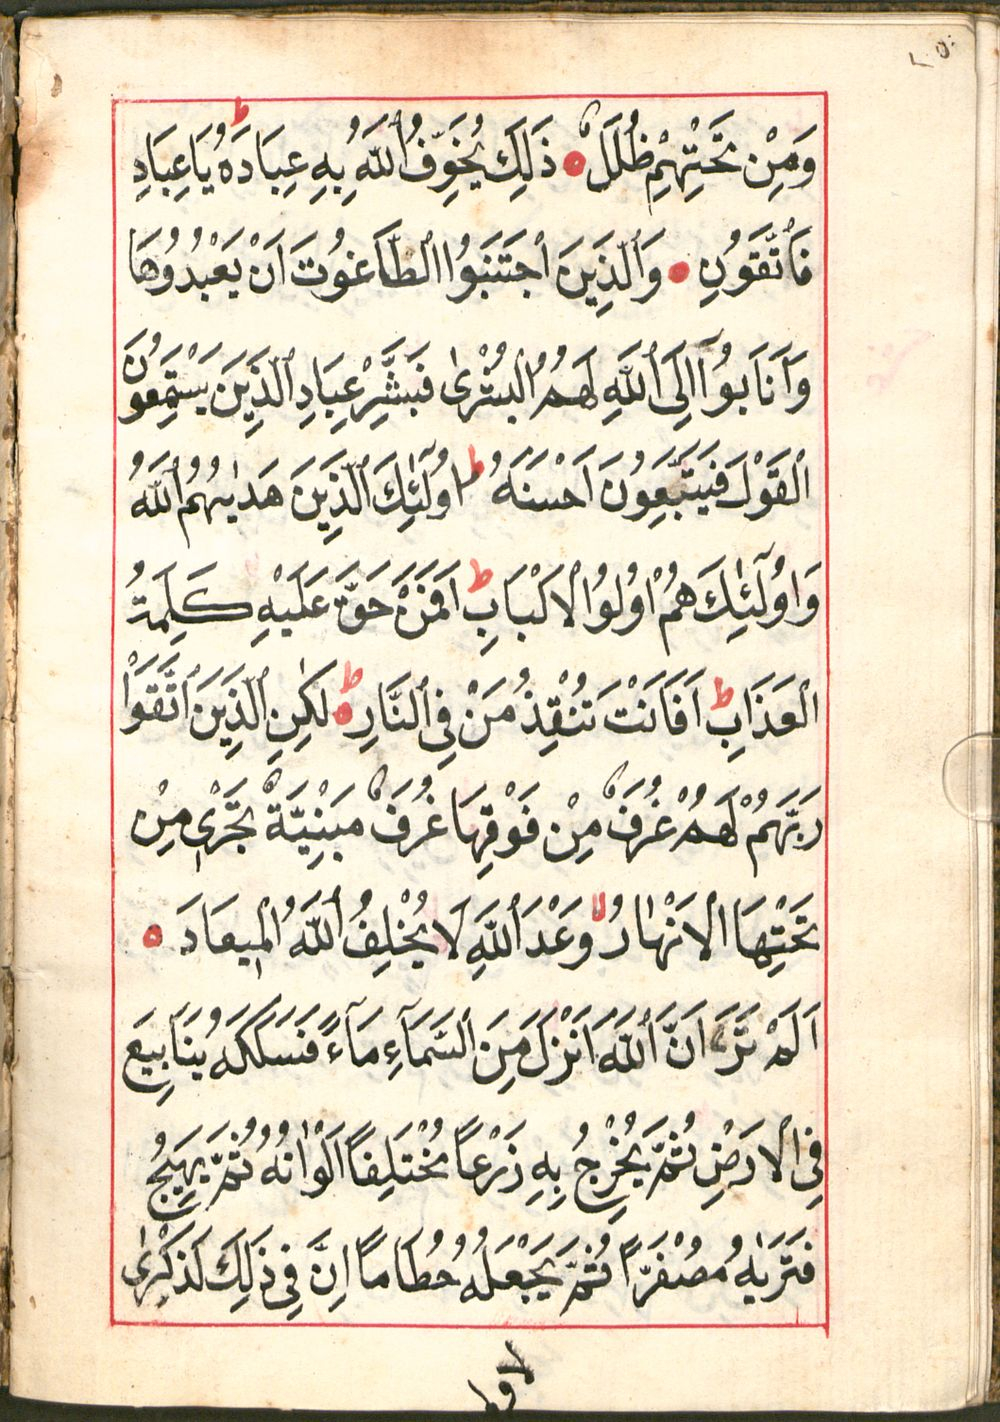 وَمِنْ تَحْتِهِمْ ظُلَلٌ ذَلِكَ يُخَوِّفُ ٱللَّهُ بِهِ عِبَادَهُ ط يَا عِبَادِ
فَٱتَّقُونِ وَٱلَّذِينَ ٱجْتَنَبُوا ٱلطَّاغُوتَ اَنْ يَعْبُدُوهَا
وَاَنَابُوآ اِلَى ٱللَّهِ لَهُمُ ٱلْبُشْرٰى فَبَشِّرْ عِبَادِ ٱلَّذِينَ يَسْتَمِعُونَ
ٱلْقَوْلَ فَيَتَّبِعُونَ اَحْسَنَهُ ط اُولٰٓئِكَ ٱلَّذِينَ هَدٰيهُمُ ٱللَّهُ
وَاُولٰٓئِكَ هُمْ اُولُوا ٱلْاَلْبَابِ ط اَفَمَنْ حَقَّ عَلَيْهِ كَلِمَةُ
ٱلْعَذَابِ ط اَفَاَنْتَ تُنْقِذُ مَنْ فِي ٱلنَّارِ ط لٰكِنِ ٱلَّذِينَ ٱتَّقَوْا
رَبَّهُمْ لَهُمْ غُرَفٌ مِنْ فَوْقِهَا غُرَفٌ مَبْنِيَّةٌ تَجْرٖي مِنْ
تَحْتِهَا ٱلْاَنْهٰارُ لا وَعْدَ ٱللَّهِ لَا يُخْلِفُ ٱللَّهُ ٱلْمٖيعَادَ
اَلَمْ تَرَ اَنَّ ٱللَّهَ اَنْزَلَ مِنَ ٱلسَّمَآءِ مَآءً فَسَلَكَهُ يَنَابِيعَ
فِي ٱلْاَرْضِ ثُمَّ يُخْرِجُ بِهِ زَرْعًا مُخْتَلِفًا اَلْوَانُهُ ثُمَّ يَهِيجُ
فَتَرٰيهُ مُصْفَرًّا ثُمَّ يَجْعَلُهُ حُطَامًا اِنَّ فِي ذَلِكَ لَذِكْرٰى